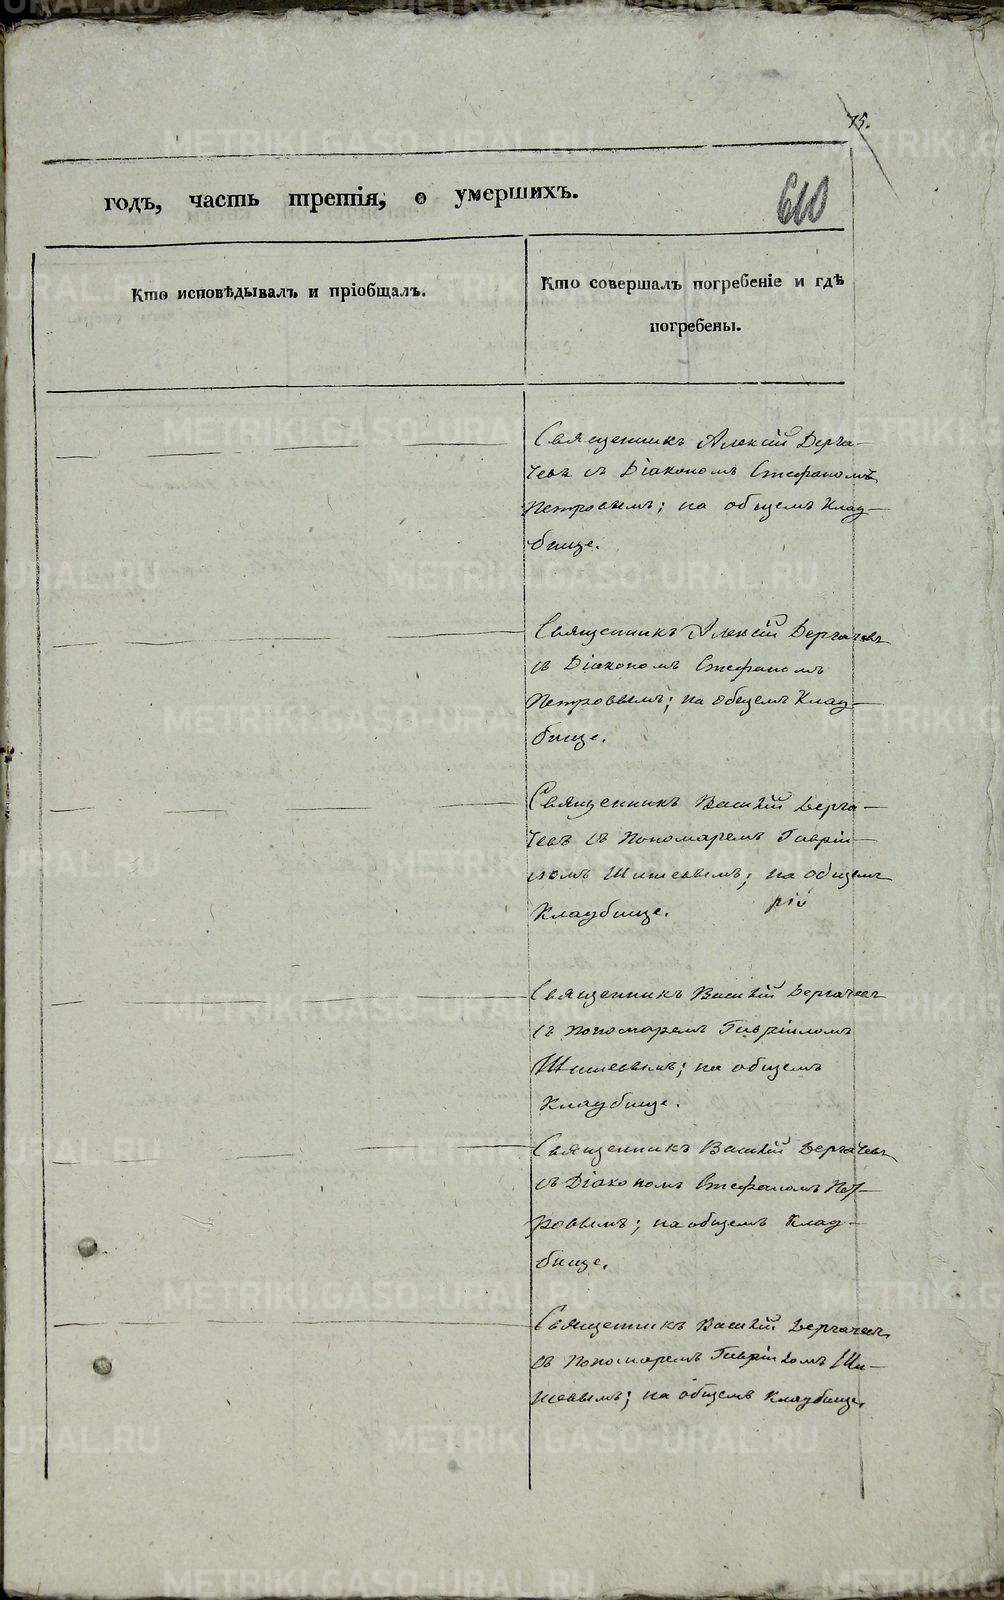 75.
годъ, часть третія, о умершихъ.
610
Кто исповѣдывалъ и пріобщалъ.
Кто совершалъ погребеніе и гдѣ
погребены.
Священникъ Алексій Дерга—
чевъ съ Діакономъ Стефаномъ
Петровымъ; на общемъ Клад—
бище.
Священникъ Алексій Дергачевъ
съ Діакономъ Стефаномъ
Петровымъ; на общемъ Клад—
бище.
Священникъ Василій Дерга—
чевъ съ Пономаремъ Гавріи—
ломъ Шишевымъ; на общемъ
Кладбище.
рій
Священникъ Василій Дергачевъ
съ Пономаремъ Гавріиломъ
Шишевымъ; на общемъ
Кладбище.
Священникъ Василій Дергачевъ
съ Діакономъ Стефаномъ Пет—
ровымъ; на общемъ Клад—
бище.
Священникъ Василій Дергачевъ
съ Пономаремъ Гавріиломъ Ши—
шевымъ; на общемъ Кладбище.
METRIKI.GASO-URAL.RU